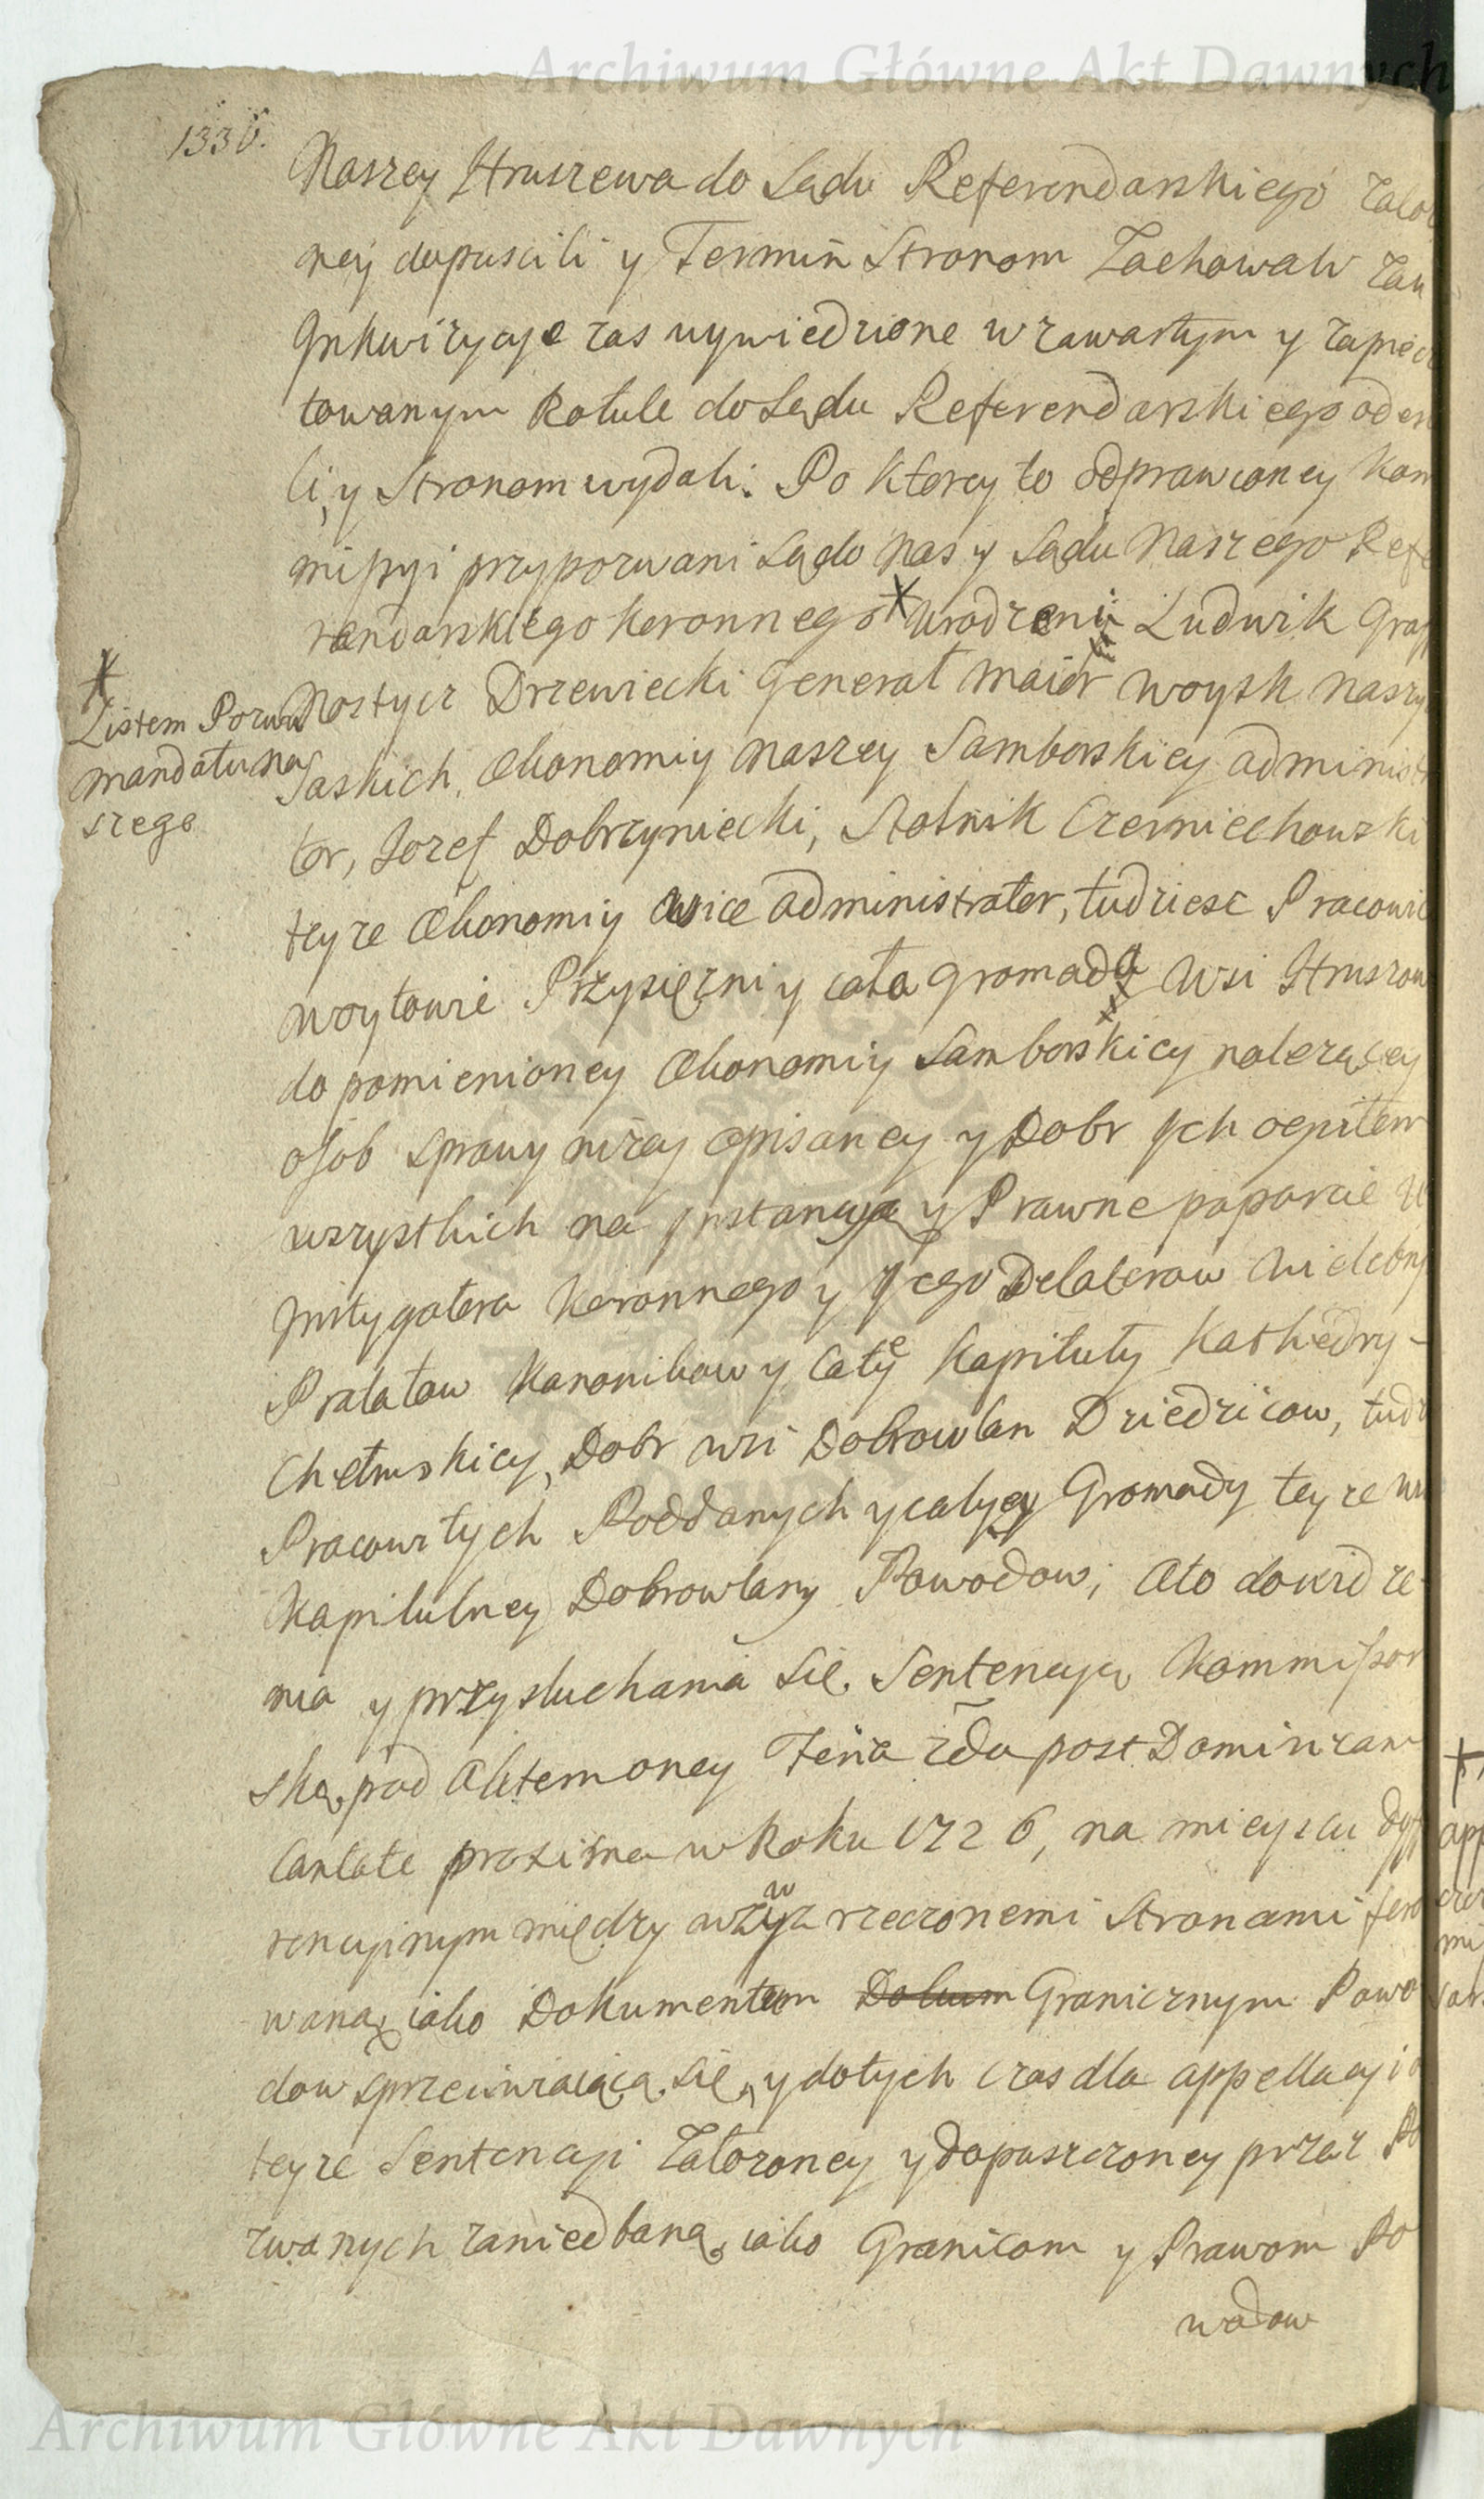 Archiwum Główne Akt Dawnych
1336.
Naszey Hruszewa do Sądu Referendarskiego załoz
ney dopuscili y Termin Stronom Zachowali zaw
Inkwizycye zas wywiedzione w zawartym y zapiecz
towanym Rotule do Sądu Referendarskiego odesz
li, y Stronom wydali. Po ktorey to odprawioney Kom
missyi przypozwani są do Nas y Sądu Naszego Refe
rendarskiego Koronnego * Urodzeni Ludwik Grap
Nostycz Drzewiecki Generał Maior Woysk Naszych
Saskich, Ekonomiy Naszey Samborskiey Administr
tor, Jozef Dobrzyniecki, Stolnik Czerniechowski
teyze Ekonomiy Wice Administrator, tudziesz Pracowic
Woytowie Przysięzni y cała Gromada Wsi Hruszow
do pomienioney Ekonomiy Samborskiey nalezącey
osob sprawy nizey opisaney y Dobr Ich ogułem
wszystkich na Instancyą y Prawne poparcie U
Instygatora Koronnego y Jego Delatorow Wielebny
Prałatow Kanonikow y Całey Kapituły Kathedry-
Chełmskiey, Dobr Wsi Dobrowlan Dziedzicow, tudz
Pracowitych Poddanych y całey Gromady teyze W
Kapitulney Dobrowlany Powodow; Ato do widze-
nia y przysłuchania się Sentencyą Kommissor
ską pod Aktem oney Feria 2da post Dominicam
Cantate proxima w Roku 1726, na mieyscu dyff
rencyinym między wzwyz rzeczonemi Stronami fero
waną, iako Dokumentom Dokum Granicznym Powo
dow sprzeciwiaiącą się, y dotych czas dla appellacyi o
teyze Sentencyi Załozoney y dopuszczoney przez Po
zwanych zaniedbaną, iako Granicom y Prawom Po
wodow
*
Listem Pozwu
Mandatu Na
szego
Archiwum Główne Akt Dawnych